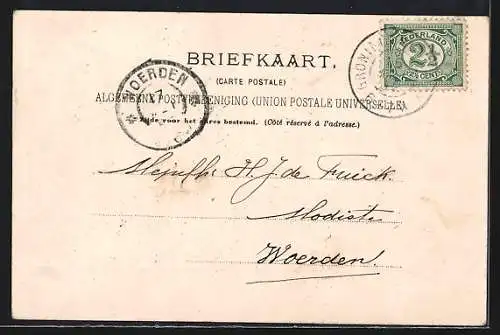 BRIEFKAART.
(CARTE POSTALE)
ALGEMEENE POSTVEREENIGING (UNION POSTALE UNIVERSELLE)
Zijde voor het adres bestemd. (Côté réservé à l'adresse.)
NEDERLAND
2½
CENT
WOERDEN
Mejufhr H. J. de
Modiste
Woerden.